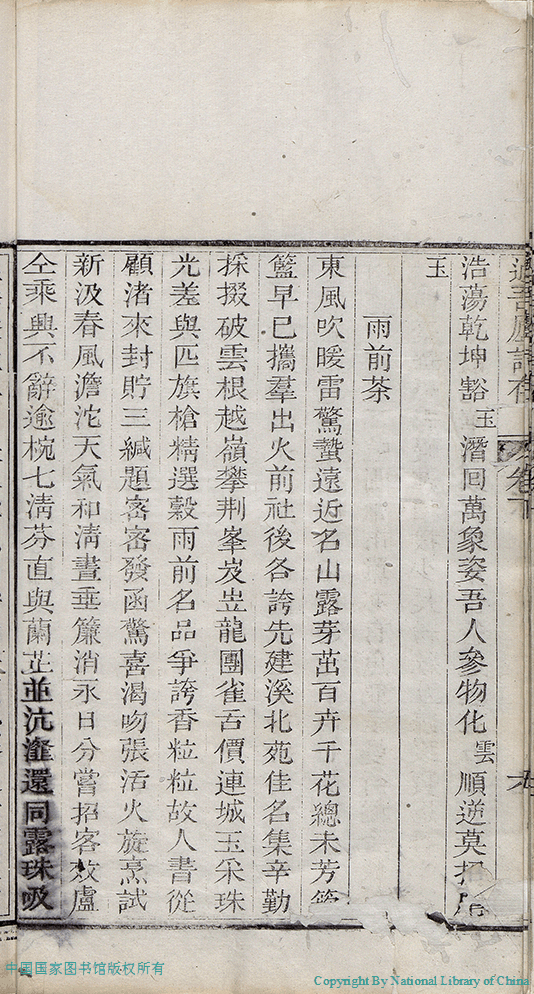 吾廬詩存 卷下
浩蕩乾坤豁玉潛回萬象姿吾人參物化雲順逆莫
玉
雨前茶
東風吹暖雷驚蟄遠近名山露芽茁百卉千花總未芳
籃早已攜羣出火前社後各誇先建溪北苑佳名集辛勤
採掇破雲根越嶺攀荆峯岌岦龍團雀舌價連城玉采珠
光差與匹旗槍精選穀雨前名品爭誇香粒粒故人書從
顧渚來封貯三緘題密密發函驚喜渴吻張活火旋烹試
新汲春風澹沱天氣和清晝垂簾消永日分嘗招客效盧
仝乘興不辭逾椀七淸芬直與蘭茝並沆瀣還同露珠吸
中国国家图书馆版权所有
Copyright By National Library of China